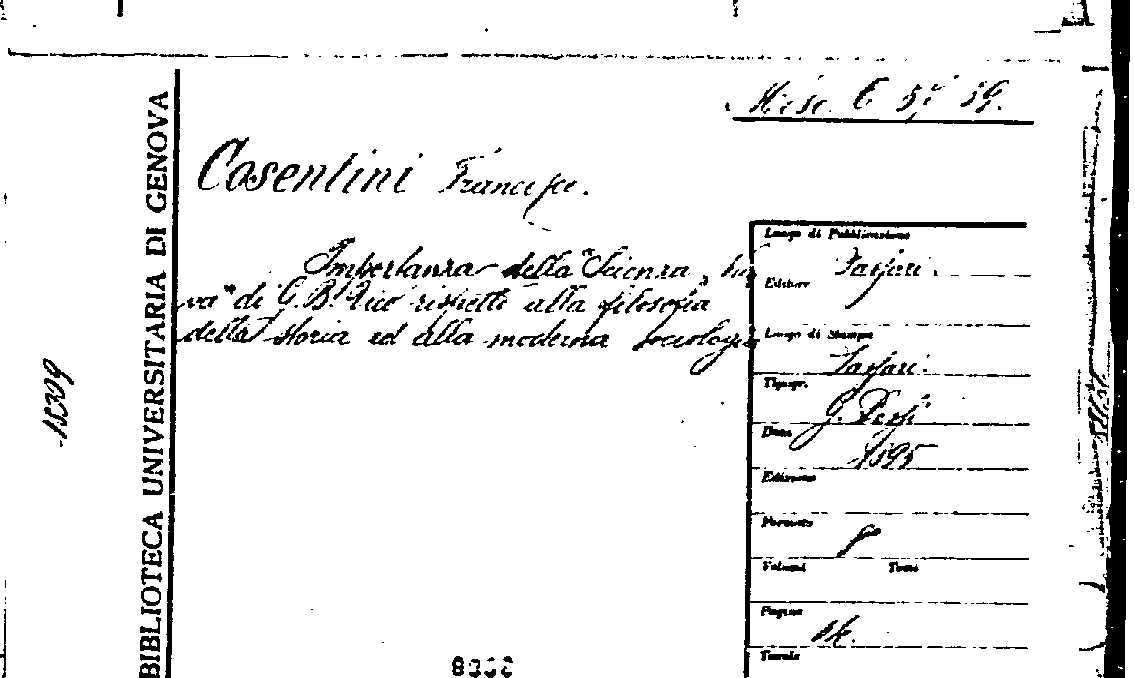 Misc. C 57 59.
BIBLIOTECA UNIVERSITARIA DI GENOVA
Cosentini Francesco.
Importanza della "Scienza nuo
va" di G. B. Vico rispetto alla filosofia
della storia ed alla moderna sociologia
Luogo di Pubblicazione
Sassari.
Editore
Luogo di Stampa
Sassari.
Tipogr.
G. Dessì
Data
1895
Edizione
Formato
8
Volumi Tomi
Pagine
Tavole
15309